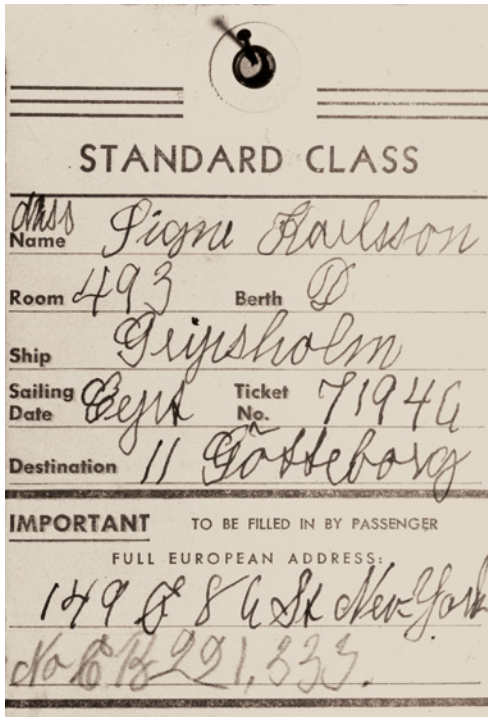 STANDARD CLASS
Miss
Name Signe Karlsson
Room 493 Berth D
Ship Gripsholm
Sailing Date Sept Ticket No. 71946
Destination 11 Götteborg
IMPORTANT TO BE FILLED IN BY PASSENGER
FULL EUROPEAN ADDRESS:
149 E 86 St New York
No 221,333.